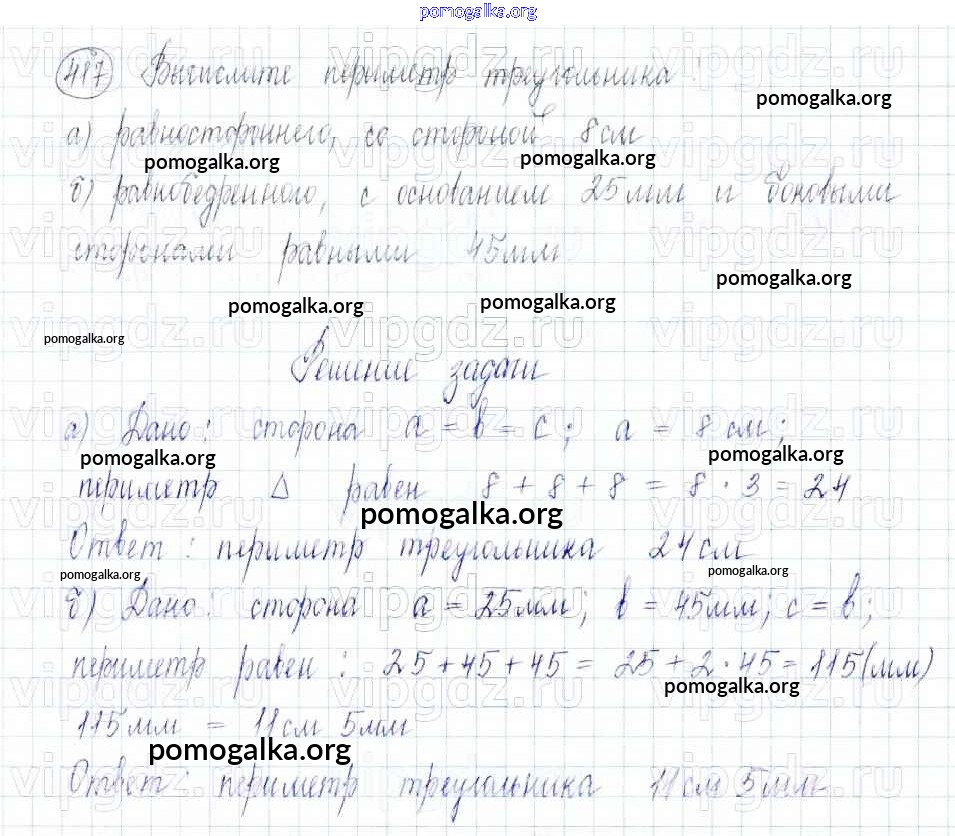 pomogalka.org
417 Вычислите периметр треугольника :
pomogalka.org
а) равностороннего, со стороной 8 см
pomogalka.org pomogalka.org
б) равнобедренного, с основанием 25 мм и боковыми
сторонами равными 45 мм
pomogalka.org pomogalka.org pomogalka.org
vipgdz.ru vipgdz.ru vipgdz.ru
pomogalka.org
Решение задачи
а) Дано: сторона a = b = c; a = 8 см;
pomogalka.org pomogalka.org
периметр Δ равен 8 + 8 + 8 = 8 · 3 = 24
pomogalka.org
Ответ : периметр треугольника 24 см
pomogalka.org pomogalka.org
б) Дано: сторона a = 25 мм; b = 45 мм; c = b;
периметр равен : 25 + 45 + 45 = 25 + 2 · 45 = 115 (мм)
pomogalka.org
115 мм = 11 см 5 мм
pomogalka.org
Ответ: периметр треугольника 11 см 5 мм